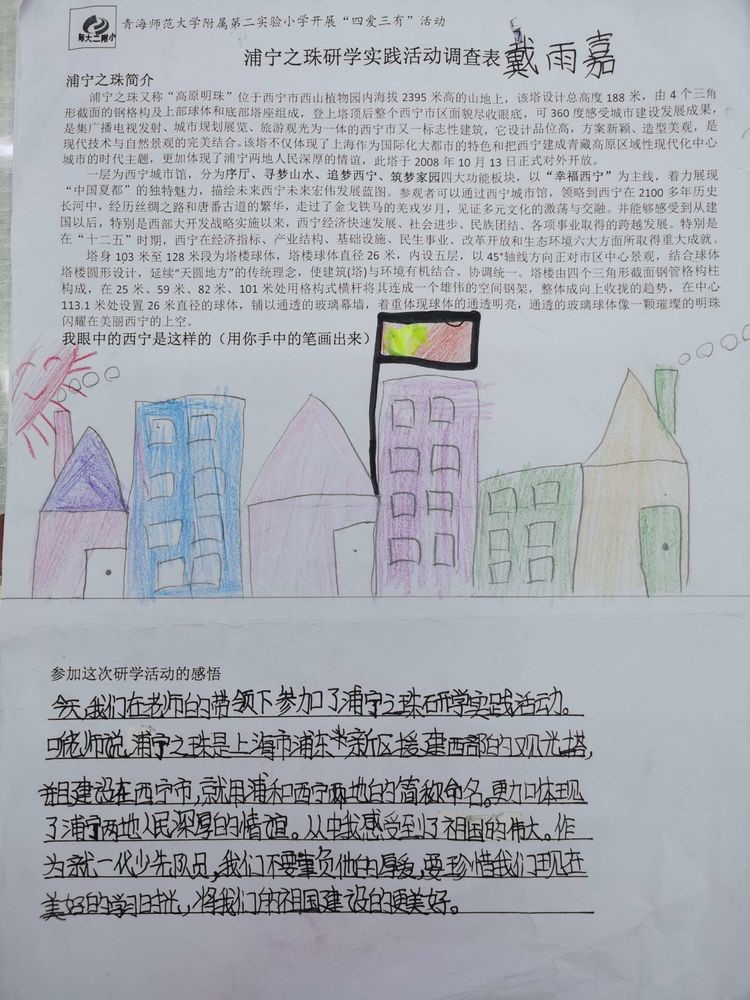 青海师范大学附属第二实验小学开展“四爱三有”活动
师大二附小
浦宁之珠研学实践活动调查表 戴雨嘉
浦宁之珠简介
浦宁之珠又称“高原明珠”位于西宁市西山植物园内海拔 2395 米高的山地上，该塔设计总高度 188 米，由 4 个三角
形截面的钢格构及上部球体和底部塔座组成，登上塔顶后整个西宁市区面貌尽收眼底，可 360 度感受城市建设发展成果，
是集广播电视发射、城市规划展览、旅游观光为一体的西宁市又一标志性建筑，它设计品位高，方案新颖、造型美观，是
现代技术与自然景观的完美结合。该塔不仅体现了上海作为国际化大都市的特色和把西宁建成青藏高原区域性现代化中心
城市的时代主题，更加体现了浦宁两地人民深厚的情谊，此塔于 2008 年 10 月 13 日正式对外开放。
一层为西宁城市馆，分为序厅、寻梦山水、追梦西宁、筑梦家园四大功能板块，以“幸福西宁”为主线，着力展现
“中国夏都”的独特魅力，描绘未来西宁未来宏伟发展蓝图。参观者可以通过西宁城市馆，领略到西宁在 2100 多年历史
长河中，经历丝绸之路和唐番古道的繁华，走过了金戈铁马的羌戎岁月，见证多元文化的激荡与交融。并能够感受到从建
国以后，特别是西部大开发战略实施以来，西宁经济快速发展、社会进步、民族团结、各项事业取得的跨越发展。特别是
在“十二五”时期，西宁在经济指标、产业结构、基础设施、民生事业、改革开放和生态环境六大方面所取得重大成就。
塔身 103 米至 128 米段为塔楼球体，塔楼球体直径 26 米，内设五层，以 45°轴线方向正对市区中心景观，结合球体
塔楼圆形设计，延续“天圆地方”的传统理念，使建筑(塔)与环境有机结合、协调统一。塔楼由四个三角形截面钢管格构柱
构成，在 25 米、59 米、82 米、101 米处用格构式横杆将其连成一个雄伟的空间钢架，整体成向上收拢的趋势，在中心
113.1 米处设置 26 米直径的球体，铺以通透的玻璃幕墙，着重体现球体的通透明亮，通透的玻璃球体像一颗璀璨的明珠
闪耀在美丽西宁的上空。
我眼中的西宁是这样的（用你手中的笔画出来）
参加这次研学活动的感悟
今天,我们在老师的带领下参加了浦宁之珠研学实践活动。
听老师说,浦宁之珠是上海市浦东新区援建西部的观光塔,
并且建设在西宁市,就用浦和西宁两地的简称命名。更加体现
了浦宁两地人民深厚的情谊。从中我感受到了祖国的伟大。作
为新一代少先队员,我们不要辜负他的厚爱,要珍惜我们现在
美好的学习时光,将我们的祖国建设的更美好。